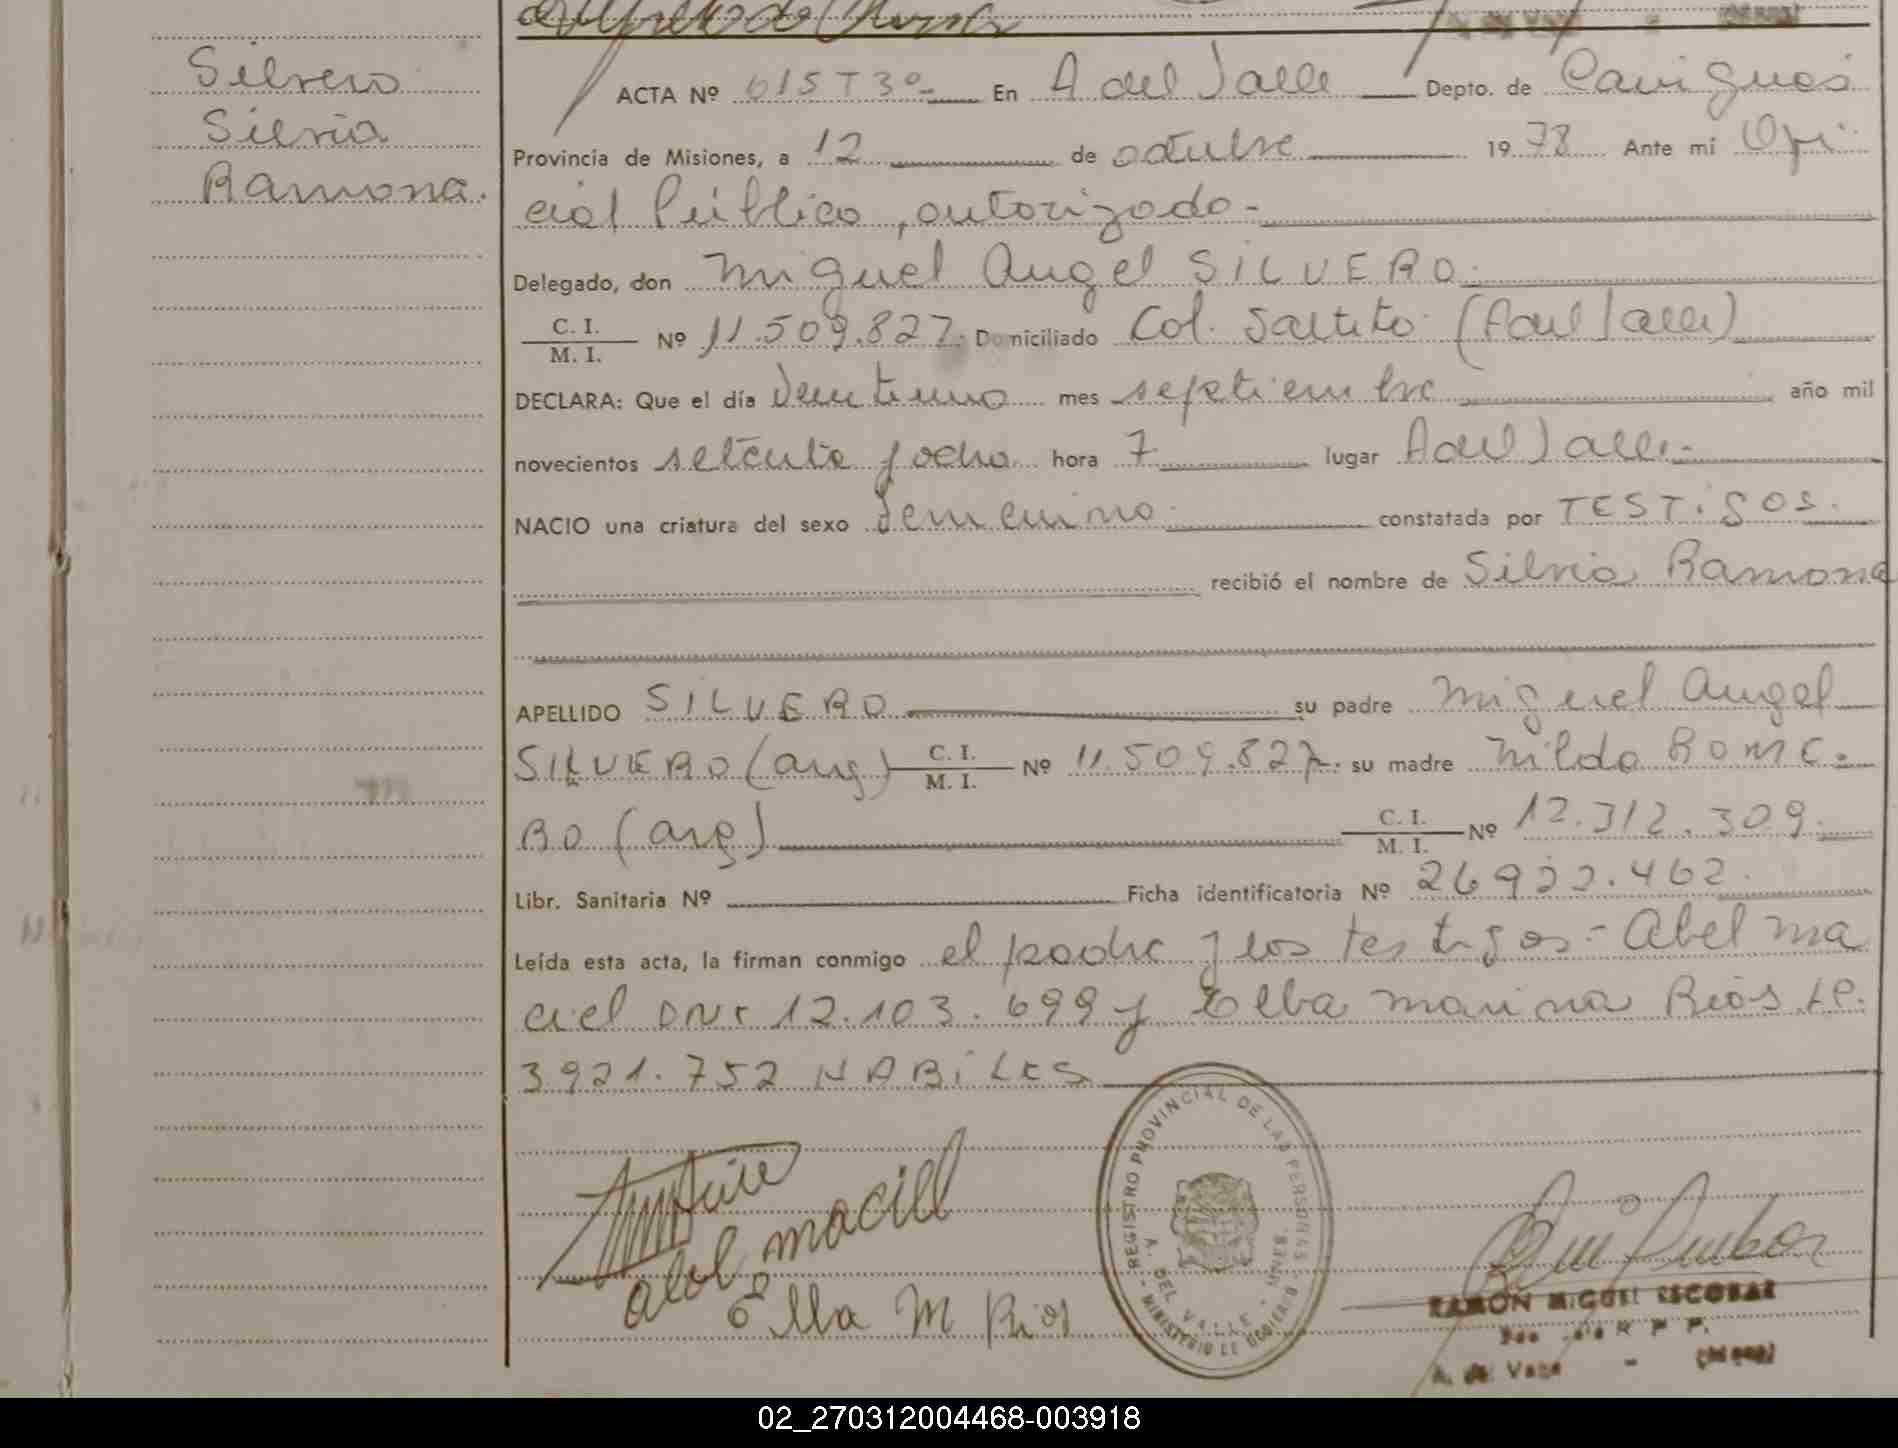 Silvero
Silvia
Ramona.
ACTA Nº 615 T 3º- En A del Valle Depto. de Cainguas
Provincia de Misiones, a 12 de octubre 1978 Ante mí Ofi
cial Público, autorizado-
Delegado, don Miguel Angel SILVERO.
C. I.
M. I. Nº 11.509.827. Domiciliado Col. Saltito. (A del Valle)
DECLARA: Que el día veintiuno mes septiembre año mil
novecientos setenta y ocho hora 7 lugar A del Valle.-
NACIO una criatura del sexo femenino. constatada por TESTIGOS.
recibió el nombre de Silvia Ramona
APELLIDO SILVERO su padre Miguel Angel
SILVERO (arg) C. I.
M. I. Nº 11.509.827. su madre Nilda ROME-
RO (arg) C. I.
M. I. Nº 12.312.309.
Libr. Sanitaria Nº Ficha identificatoria Nº 26922.462.
Leída esta acta, la firman conmigo el padre y los testigos.- Abel Ma
ciel DNI 12.103.699 y Elba Marina Rios LC.
3921.752 HABILES
abel maciel
Elba M Rios
REGISTRO PROVINCIAL DE LAS PERSONAS
A. DEL VALLE - MNES.
MINISTERIO DE GOBIERNO
RAMÓN MIGUEL ESCOBAR
02_270312004468-003918